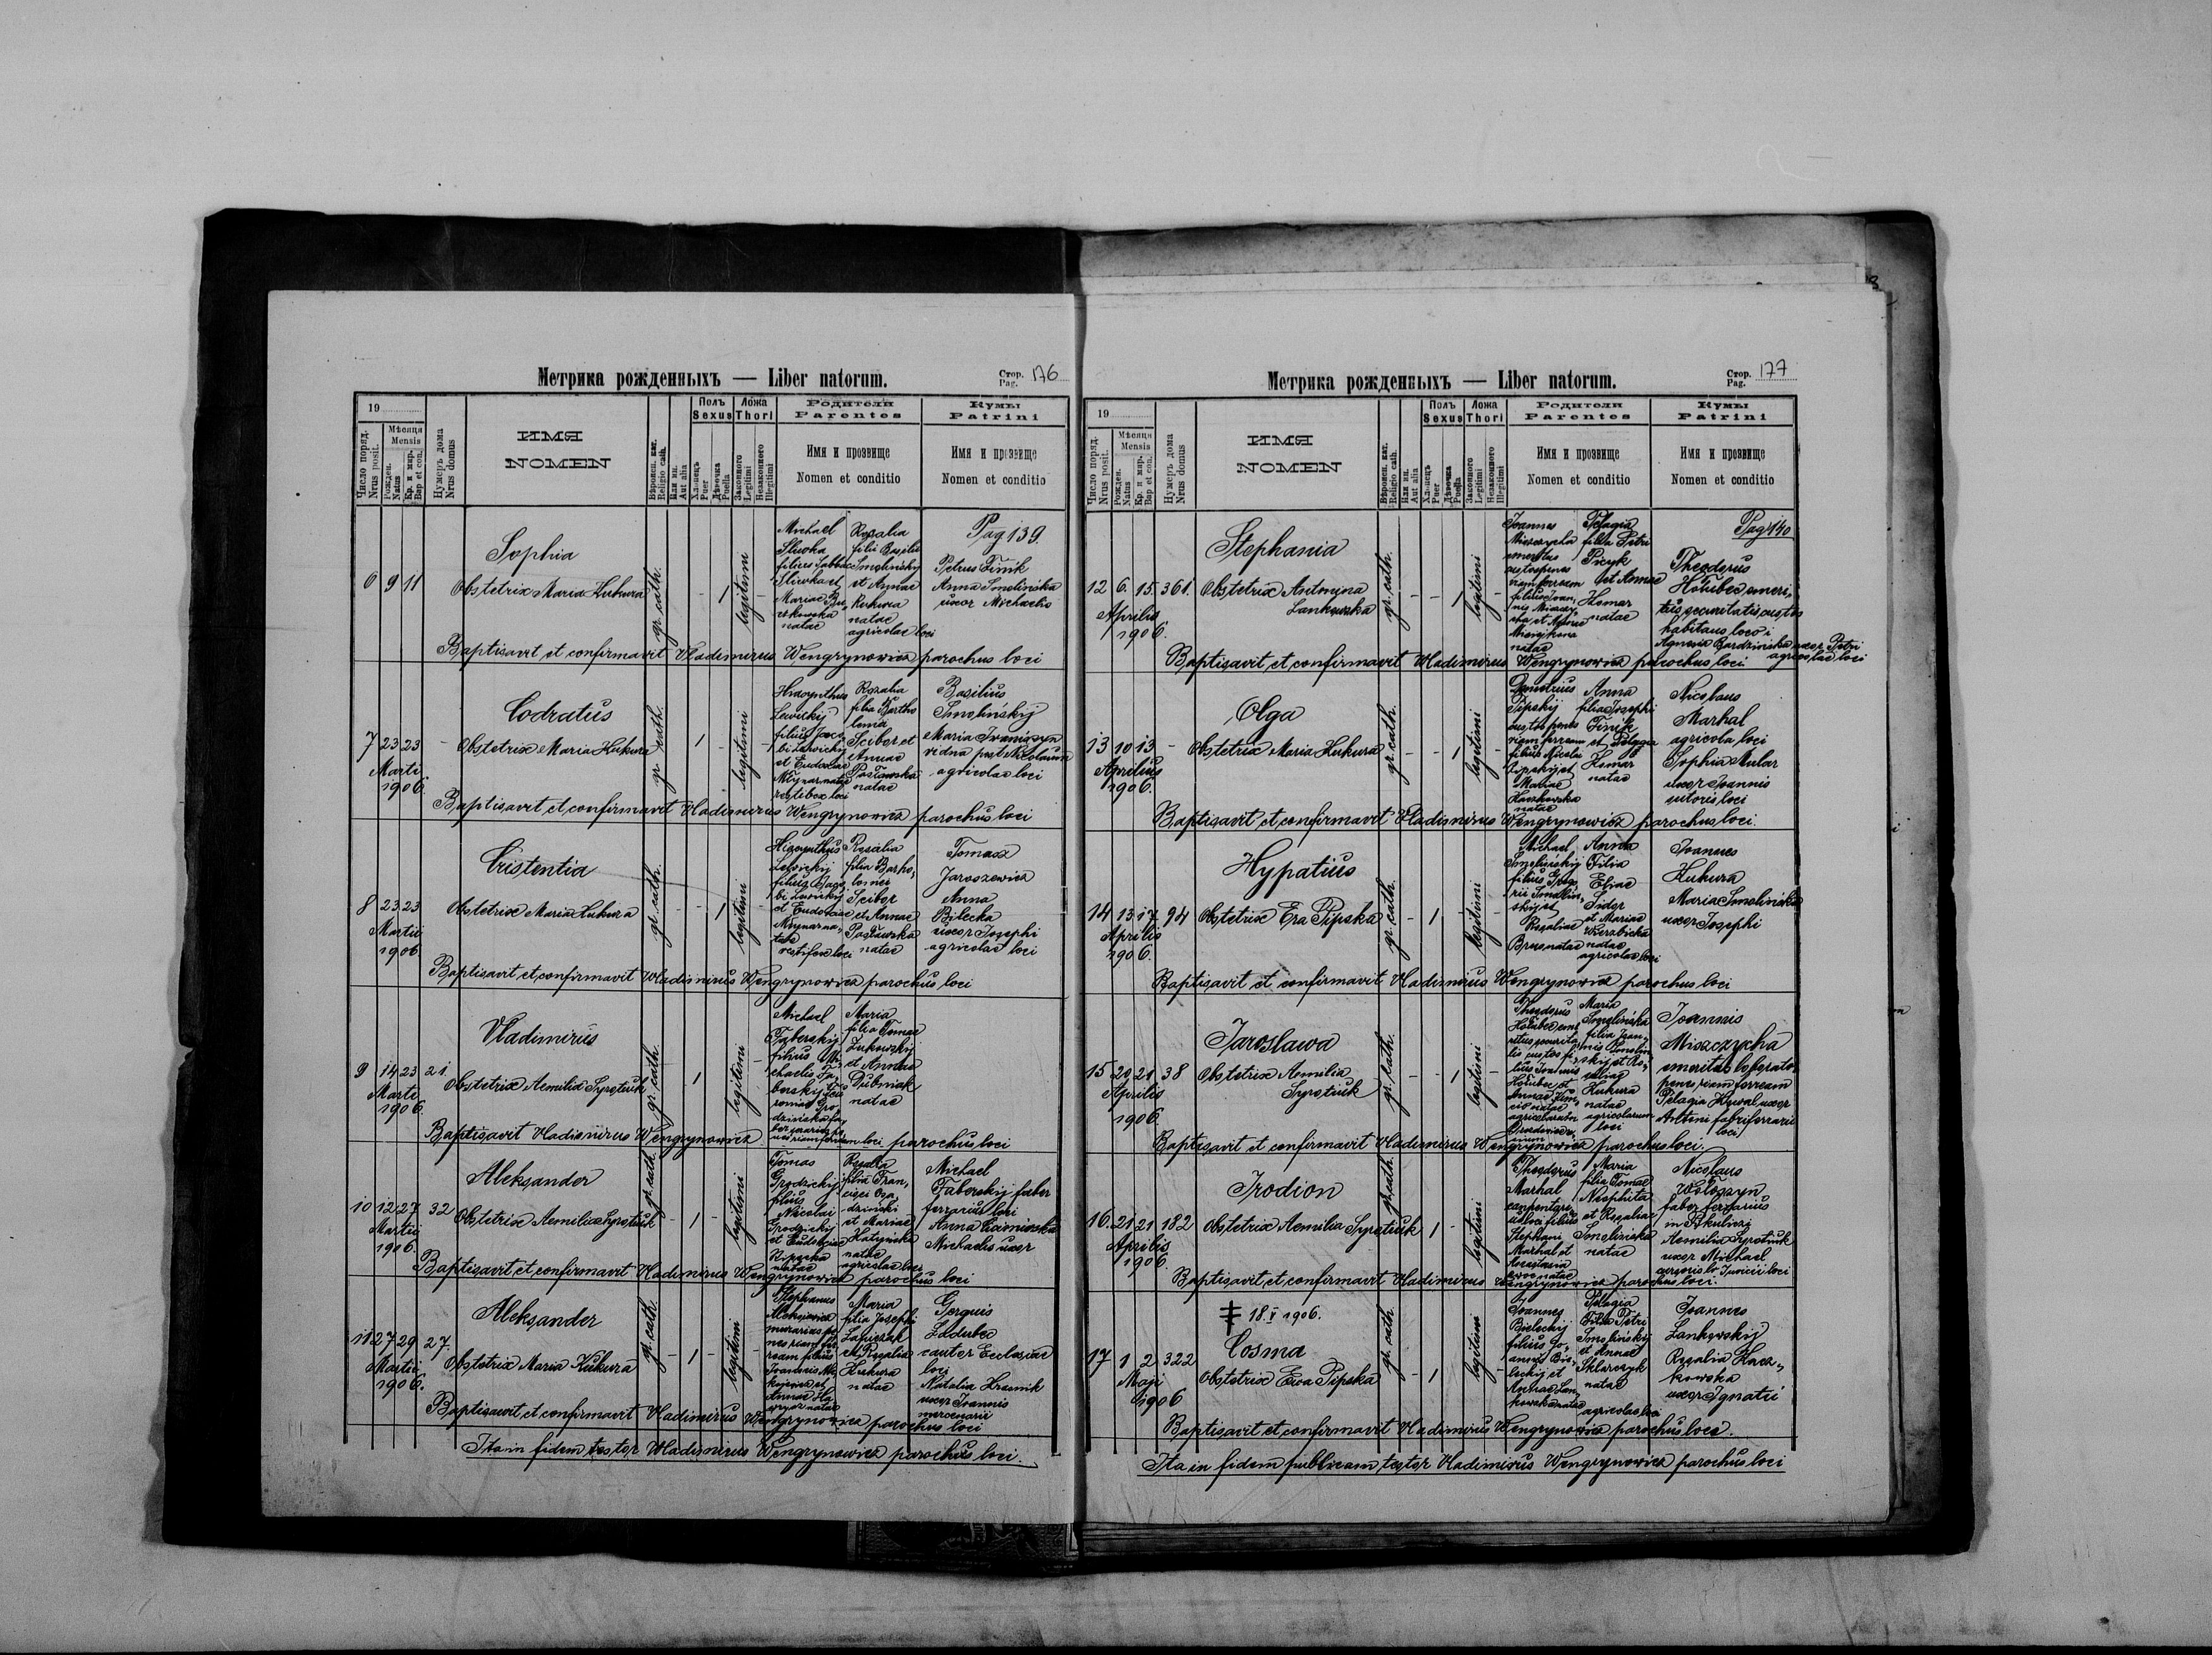 Метрика рожденныхъ — Liber natorum.
Стор. Pag. 176
19
Число поряд. Nrus posit.
Мѣсяця Mensis
Рожден. Natus
Кр. и мир. Bap et con.
Нумеръ дома Nrus domus
ИМЯ
NOMEN
Вѣроисп. каѳ. Religio cath.
Или ин. Aut alia
Полъ Sexus
Хлопецъ Puer
Дѣвочка Puella
Ложа Thori
Законного Legitimi
Незаконного Illegitimi
Родители
Parentes
Имя и прозвище
Nomen et conditio
Кумы
Patrini
Имя и прозвище
Nomen et conditio
Pag 139.
6 9 11
Sophia
Obstetrix Maria Kukura
gr. cath. - - 1 legitimi -
Michael
Sliwka
filius Sabbae
Sliwka et
Mariae
natae
Rozalia
filii Basilii
Smolinskij
et Annae
Kukura
natae
agricolae loci
Petrus Finik
Anna Smolinska
uxor Michaelis
Baptisavit et confirmavit Vladimirus Wengrynowicz parochus loci
7 23 23 -
Martii
1906.
Codratus
Obstetrix Maria Kukura
gr. cath. 1 - legitimi -
Hiacynthus
Lewickij
filius Jaco
bi Lewickij
et Eudoxiae
Mlynar natae
restifex loci
Rozalia
filia Bartho
lomei
Scibor et
Annae
Pastawska
natae
Basilius
Smolinskij
Maria Iwaniszyn
vidua post Nicolaum
agricolae loci
Baptisavit et confirmavit Vladimirus Wengrynowicz parochus loci
8 23 23
Martii
1906
Cristentia
Obstetrix Maria Kukura
gr. cath. - - 1 legitimi -
Hiacynthus
Lewickij
filius Jaco
bi Lewickij
et Eudoxiae
Mlynar na-
tae
restifex loci
Rosalia
filia Bartho-
lomei
Scibor
et Annae
Pastawska
natae
Tomasz
Jaroszewicz
Anna
Bilecka
uxor Josephi
agricolae loci
Baptisavit et confirmavit Wladimirus Wengrynowicz parochus loci
9 14 23 21.
Martii
1906.
Vladimirus
Obstetrix Aemilia Syrotiuk
gr. cath. - 1 - legitimi -
Michael
Faberskij
filius Mi
chaelis Fa
berskij
Maria
filia Tomae
Zukowskij
et Annae
Dubniak
natae
Baptisavit Vladimirus Wengrynowicz parochus loci
10 12 27 32
Martii
1906.
Aleksander
Obstetrix Aemilia Syrotiuk
gr. cath. - 1 - legitimi
Tomas
Grodzickij
filius
Nicolai
Grodzickij
et Eudoxiae
natae
Rozalia
filia Fran-
cisci
et Mariae
natae
agricolae loci
Michael
Faberskij faber
ferrarius loci
Anna Kaminska
Michaelis uxor
Baptisavit et confirmavit Vladimirus Wengrynowicz parochus loci
11 27 29 27.
Martii
1906.
Aleksander
Obstetrix Maria Kukura
gr. cath. - 1 - legitimi -
Stephanus
filius
natae
Maria
filia Josephi
et Rozalia
Kukura
natae
Gerguis
Zadubec
cantor Ecclesiae
loci
Natalia Hrasnik
uxor Ioannis
mercenarii
Baptisavit et confirmavit Vladimirus Wengrynowicz parochus loci
Ita in fidem testor Wladimirus Wengrynowicz parochus loci.
Метрика рожденныхъ — Liber natorum.
Стор. Pag. 177
19
Число поряд. Nrus posit.
Мѣсяця Mensis
Рожден. Natus
Кр. и мир. Bap et con.
Нумеръ дома Nrus domus
ИМЯ
NOMEN
Вѣроисп. каѳ. Religio cath.
Или ин. Aut alia
Полъ Sexus
Хлопецъ Puer
Дѣвочка Puella
Ложа Thori
Законного Legitimi
Незаконного Illegitimi
Родители
Parentes
Имя и прозвище
Nomen et conditio
Кумы
Patrini
Имя и прозвище
Nomen et conditio
Pag 140
12 6. 15. 361.
Aprilis
1906.
Stephania
Obstetrix Antonina
Lankowska
gr. cath. - - 1 legitimi -
Joannes
Miszczycha
emeritus
custos penes
viam ferream
filius Joan-
nis
natae
Pelagia
filia Petri
Picyk
et Annae
Homar
natae
Theodorus
Holubec emeri-
tus securitatis custos
habitans loco i
Agnesia Bardzinska uxor Petri
agricolae loci
Baptisavit et confirmavit Wladimirus Wengrynowicz parochus loci
13 10 13 -
Aprilius
1906.
Olga
Obstetrix Maria Kukura
gr. cath. - - 1 legitimi -
Demetrius
Pipskij
custos penes
viam ferream
filius Nicolai
Pipskij et
Mariae
natae
Anna
filia Josephi
Finik
et Pelagia
Homar
natae
Nicolaus
Marhal
agricola loci
Sophia Mular
uxor Joannis
sutoris loci
Baptisavit et confirmavit Vladimirus Wengrynowicz parochus loci.
14 13 17 94
Aprilis
1906.
Hypatius
Obstetrix Eva Pipska
gr. cath. - 1 - legitimi -
Michael
Smolinskij
filius Greg-
rii Smolin-
skij et
Rozaliae
Brus natae
Anna
Filia
Eliae
Sidor
et Mariae
Wierzbicka
natae
agricolae loci
Joannes
Kukura
Maria Smolinska
uxor Josephi
Baptisavit et confirmavit Vladimirus Wengrynowicz parochus loci
15 20 21 38
Aprilis
1906.
Jaroslawa
Obstetrix Aemilia
Syrotiuk
gr. cath. - - 1 legitimi -
Theodorus
Holubec
Maria
Smolinska
filia Joan-
nis
Kukura
natae
agricolarum
loci
Joannis
Miszczycha
emeritus
penes viam ferream
Pelagia Kuwal uxor
Antoni fabri ferrarii
loci
Baptisavit et confirmavit Vladimirus Wengrynowicz parochus loci.
16. 21 21 182
Aprilis
1906.
Irodion
Obstetrix Aemilia Syrotiuk
gr. cath. 1 - legitimi
Theodorus
Marhal
loci filius
Stephani
Marhal et
Anastasia
natae
Maria
filia Tomae
Neophita
et Rozaliae
Smolinska
natae
Nicolaus
Woloszyn
faber ferrarius
Aemilia Syrotiuk
uxor Michael
loci
Baptisavit et confirmavit Vladimirus Wengrynowicz parochus loci.
18. V 1906.
17 1 2 322
Maji
1906
Cosma
Obstetrix Ewa Pipska
gr. cath. - 1 legitimi
Joannes
Bieleckij
filius Jo-
annis Bie-
leckij et
Annae Lan-
kowska natae
Pelagia
Filia Petri
Smolinskij
et Annae
Sklarczyk
natae
agricolae loci
Joannes
Lankowskij
Rozalia Hacz-
kowska
uxor Ignatii
Baptisavit et confirmavit Vladimirus Wengrynowicz parochus loci.
Ita in fidem publicam testor Vladimirus Wengrynowicz parochus loci